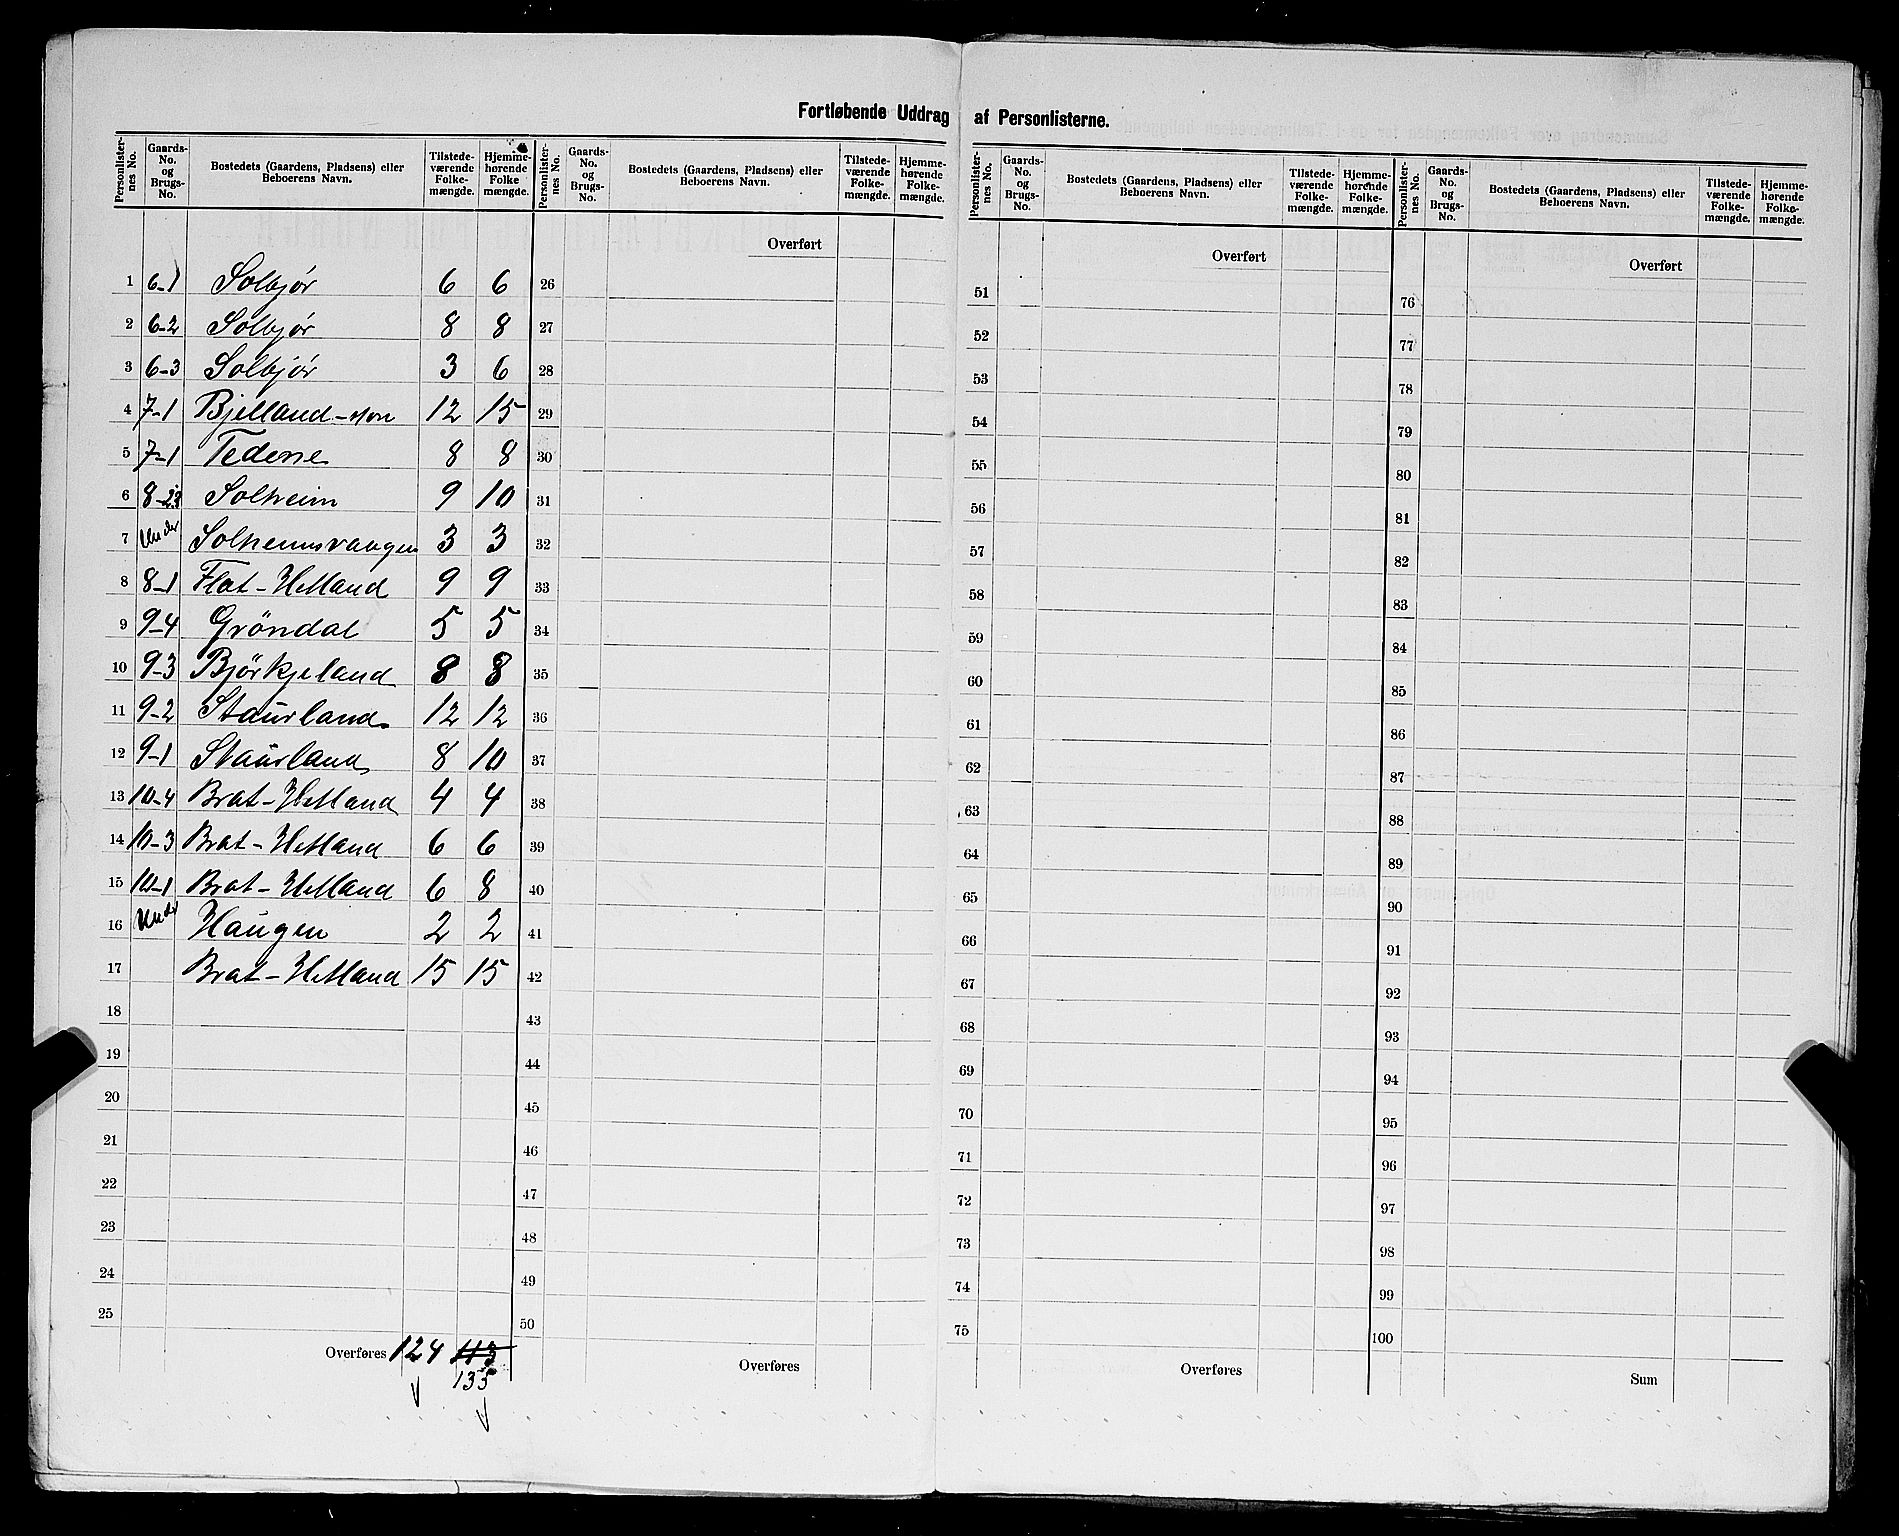 Fortløbende Uddrag af Personlisterne.
Personlister-nes No. Gaards-No. og Brugs-No. Bostedets (Gaardens, Pladsens) eller Beboerens Navn. Tilstede-værende Folke-mængde. Hjemme-hørende Folke mængde.
Personlister-nes No. Gaards-No. og Brugs-No. Bostedets (Gaardens, Pladsens) eller Beboerens Navn. Tilstede-værende Folke-mængde. Hjemme-hørende Folke-mængde.
Personlister-nes No. Gaards-No. og Brugs-No. Bostedets (Gaardens, Pladsens) eller Beboerens Navn. Tilstede-værende Folke-mængde. Hjemme-hørende Folke-mængde.
Personlister-nes No. Gaards-No. og Brugs-No. Bostedets (Gaardens, Pladsens) eller Beboerens Navn. Tilstede-værende Folke-mængde. Hjemme-hørende Folke-mængde.
1 6-1 Solbjør 6 6
2 6-2 Solbjør 8 8
3 6-3 Solbjør 3 6
4 7-1 Bjelland-mon 12 15
5 7-1 Tedene 8 8
6 8-23 Solheim 9 10
7 Under Solheimsvaagen 3 3
8 8-1 Flat-Hetland 9 9
9 9-4 Gröndal 5 5
10 9-3 Björkjeland 8 8
11 9-2 Staurland 12 12
12 9-1 Staurland 8 10
13 10-4 Brat-Hetland 4 4
14 10-3 Brat-Hetland 6 6
15 10-1 Brat-Hetland 6 8
16 Under Haugen 2 2
17 Brat-Hetland 15 15
18
19
20
21
22
23
24
25
Overføres 124 113
135
Overført
26
27
28
29
30
31
32
33
34
35
36
37
38
39
40
41
42
43
44
45
46
47
48
49
50
Overføres
Overført
51
52
53
54
55
56
57
58
59
60
61
62
63
64
65
66
67
68
69
70
71
72
73
74
75
Overføres
Overført
76
77
78
79
80
81
82
83
84
85
86
87
88
89
90
91
92
93
94
95
96
97
98
99
100
Sum